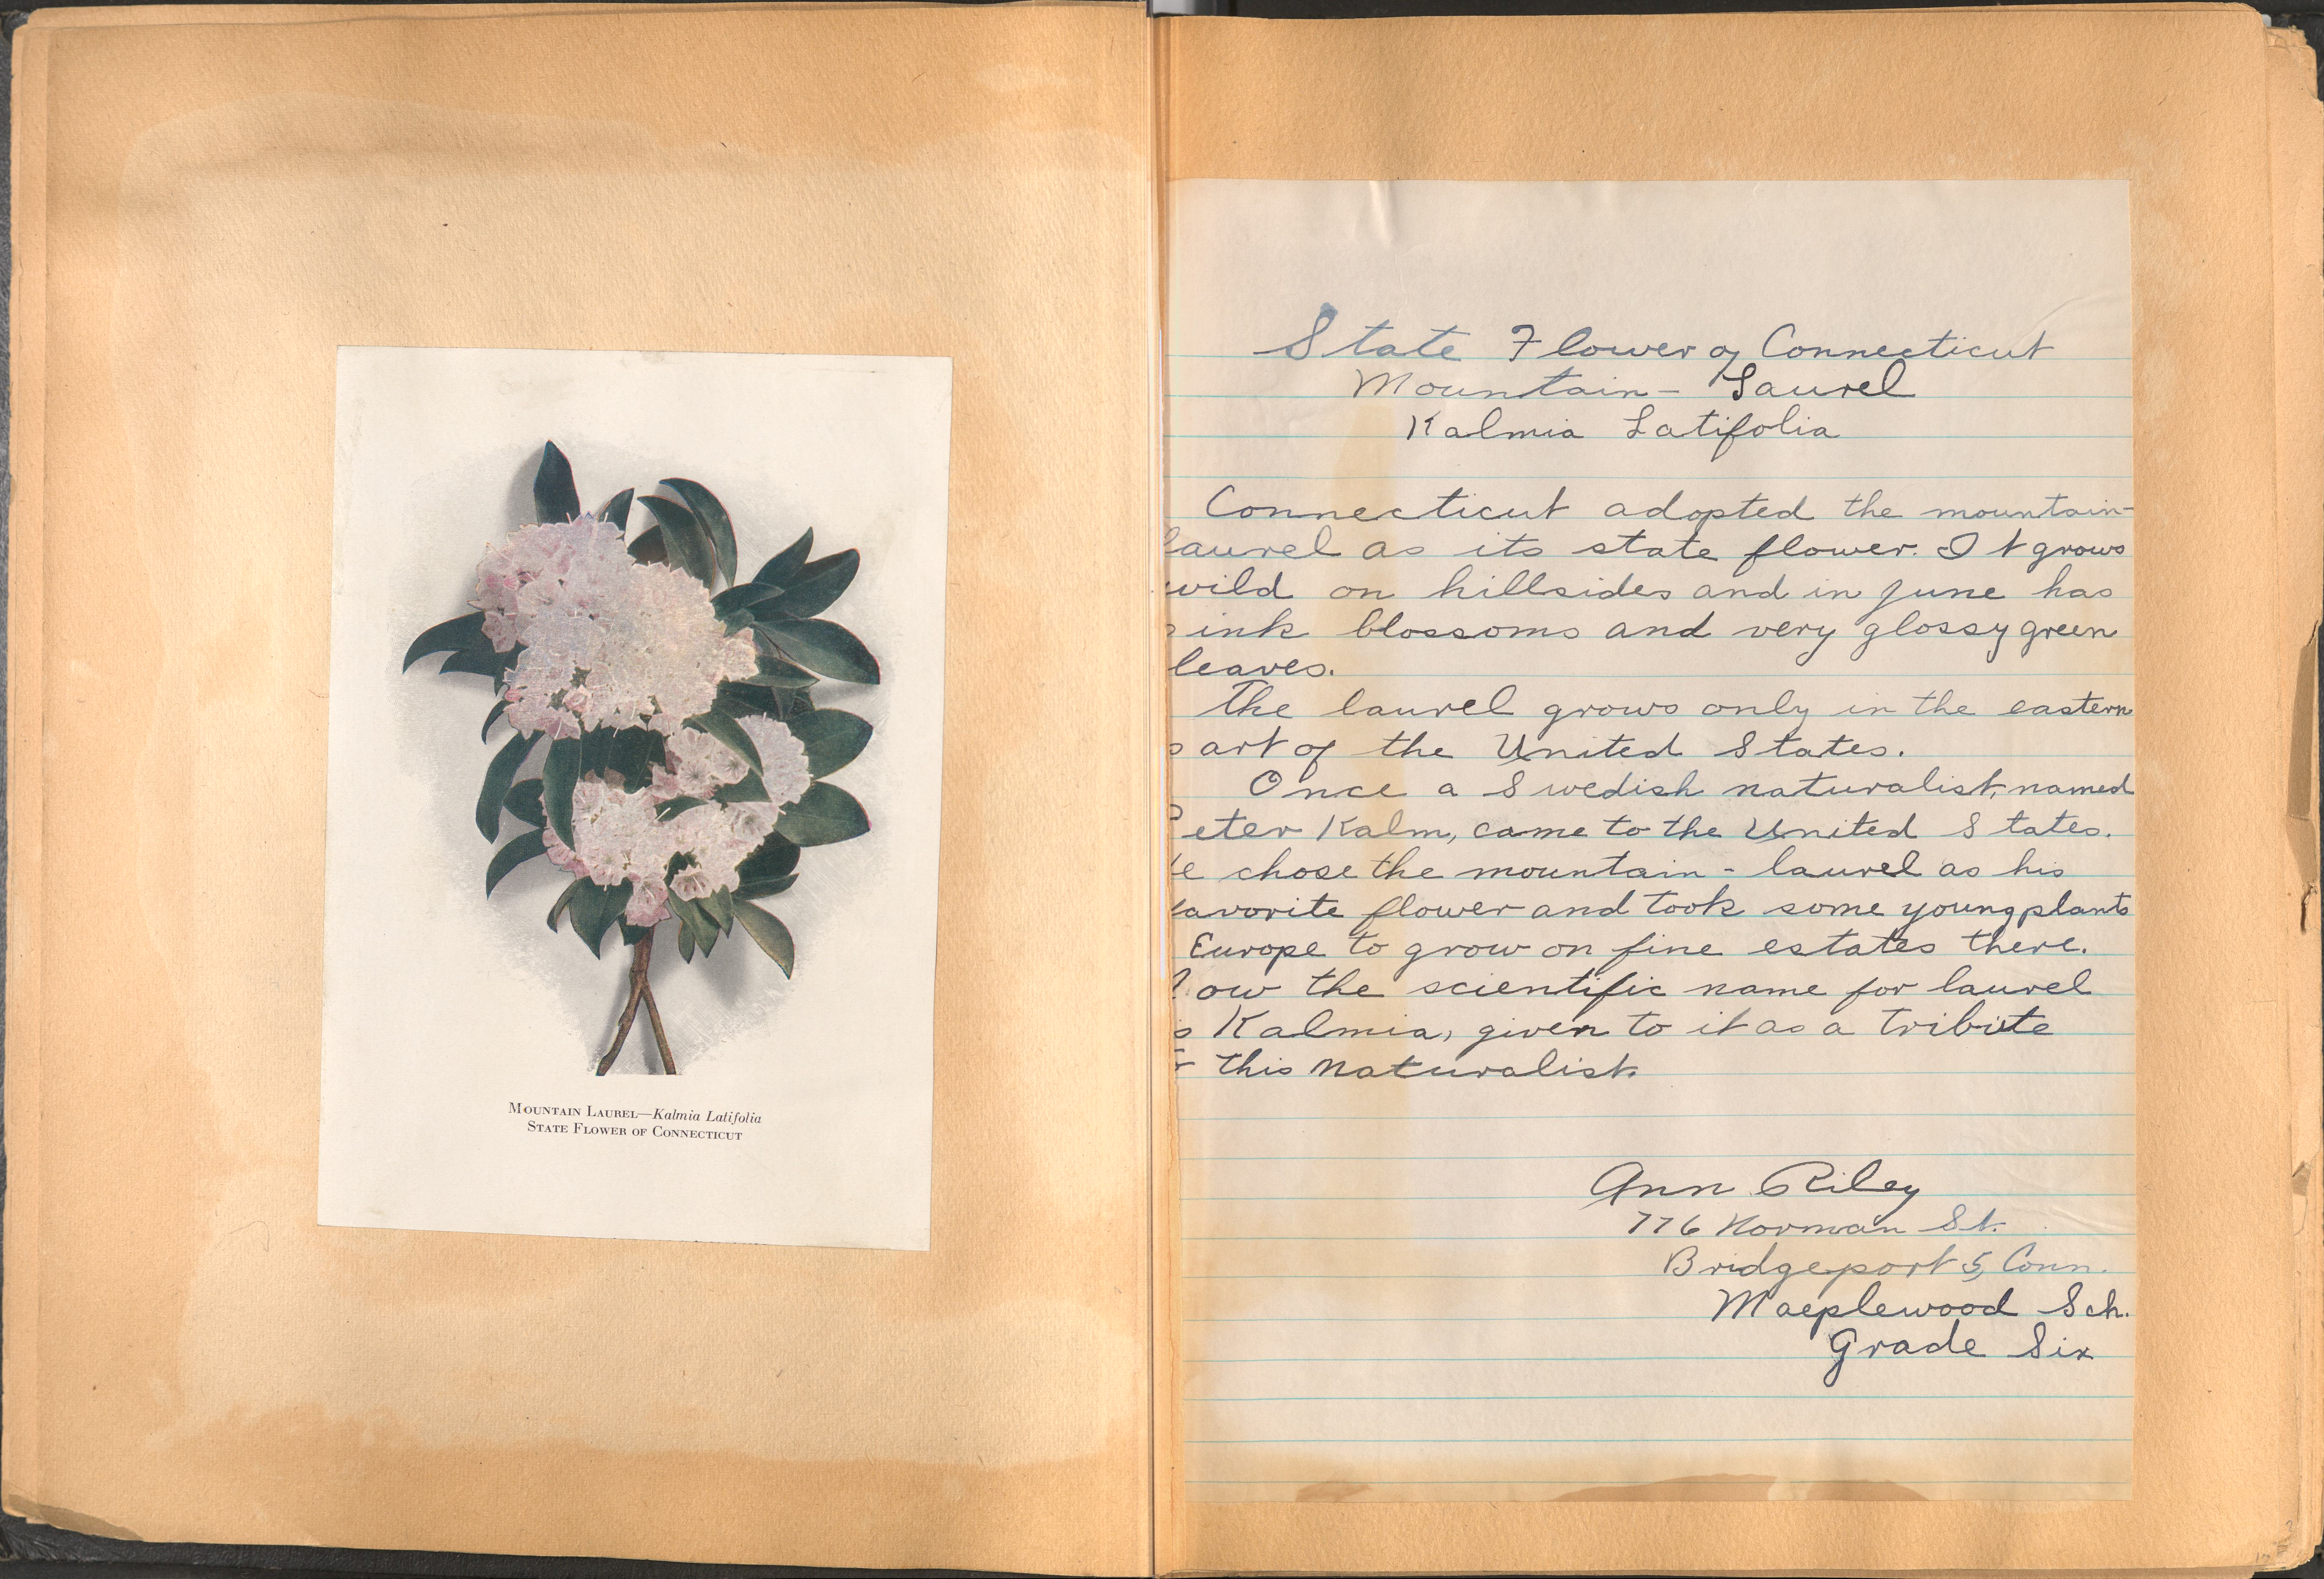 MOUNTAIN LAUREL—Kalmia Latifolia
STATE FLOWER OF CONNECTICUT
State Flower of Connecticut
Mountain - Laurel
Kalmia Latifolia
Connecticut adopted the mountain-
laurel as its state flower. It grows
wild on hillsides and in June has
pink blossoms and very glossy green
leaves.
The laurel grows only in the eastern
part of the United States.
Once a Swedish naturalist, named
Peter Kalm, came to the United States.
He chose the mountain - laurel as his
favorite flower and took some young plants
Europe to grow on fine estates there.
Now the scientific name for laurel
is Kalmia, given to it as a tribute
this naturalist.
Ann Riley
776 Norman St.
Bridgeport 5, Conn.
Maeplewood Sch.
Grade Six